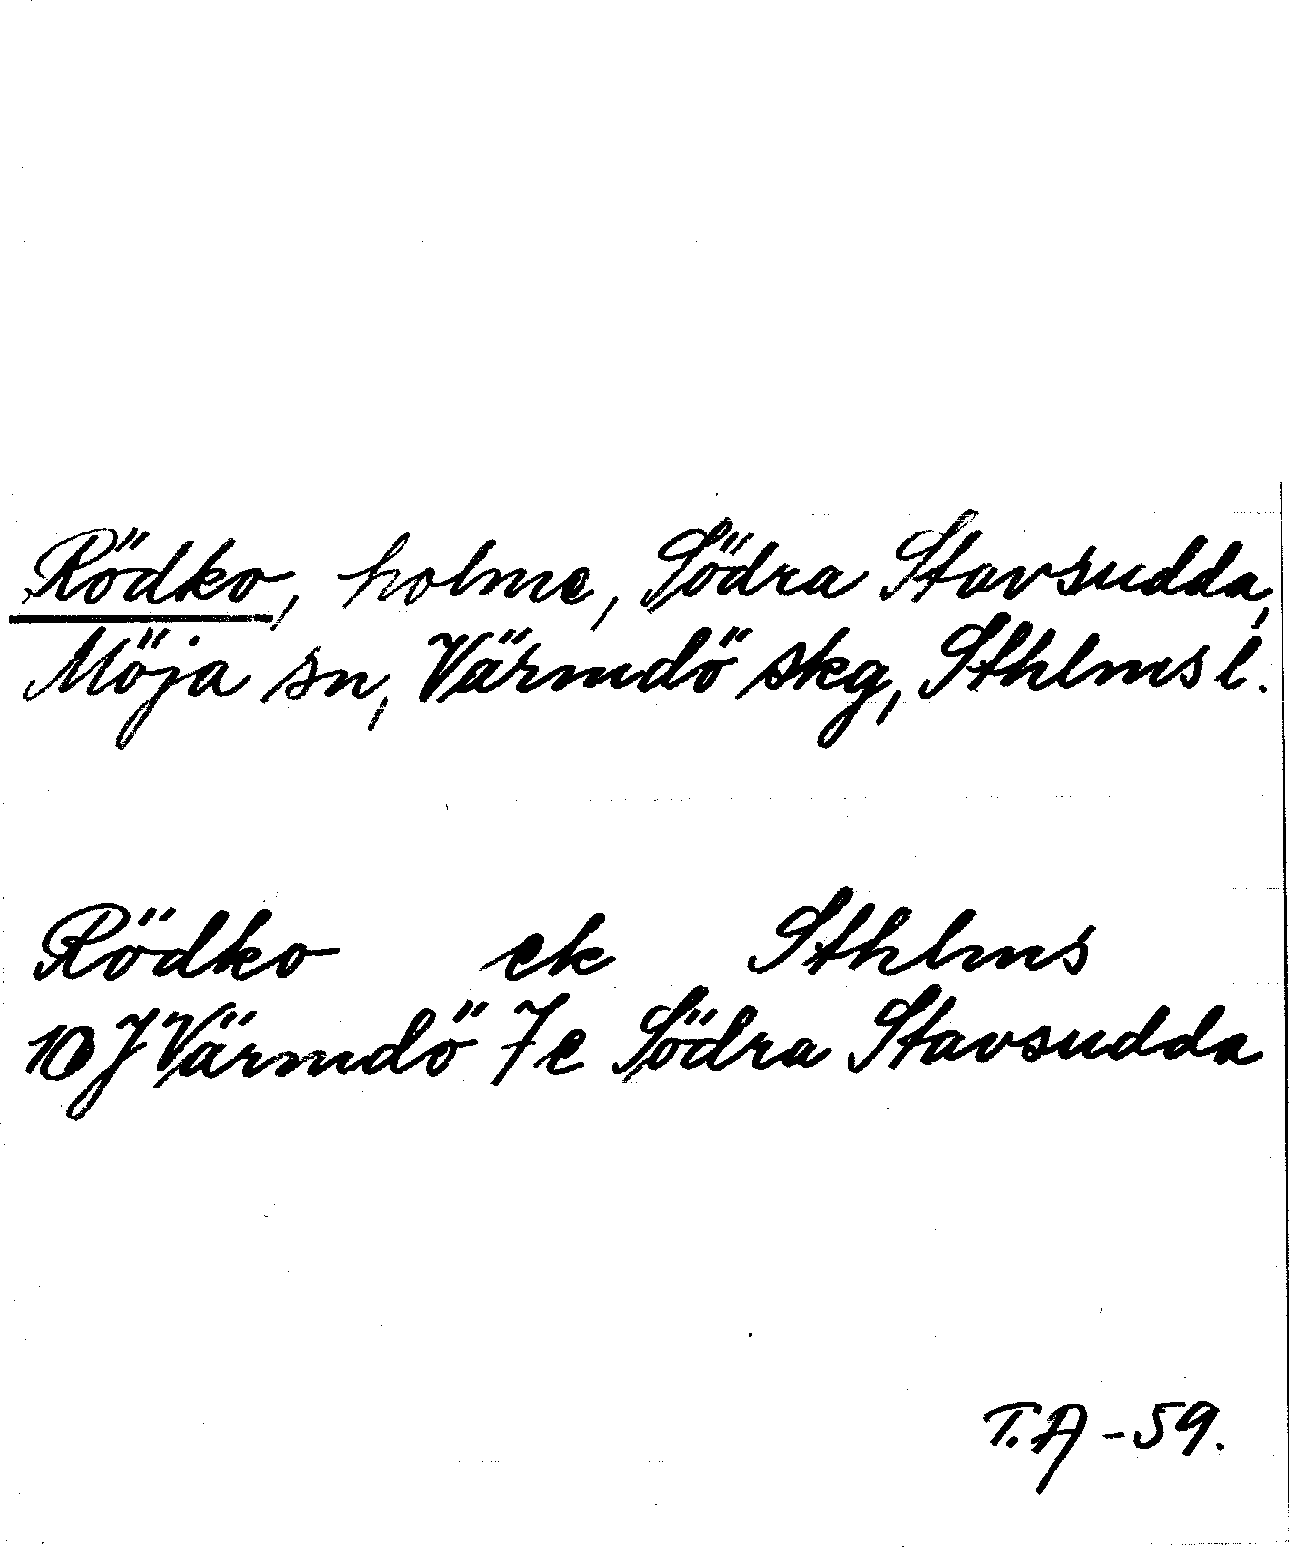 Rödko, holme, Södra Stavsudda,
Möja sn, Värmdö skg, Sthlms l.
Rödko ek Sthlms
10 J Värmdö 7e Södra Stavsudda
T.A -59.